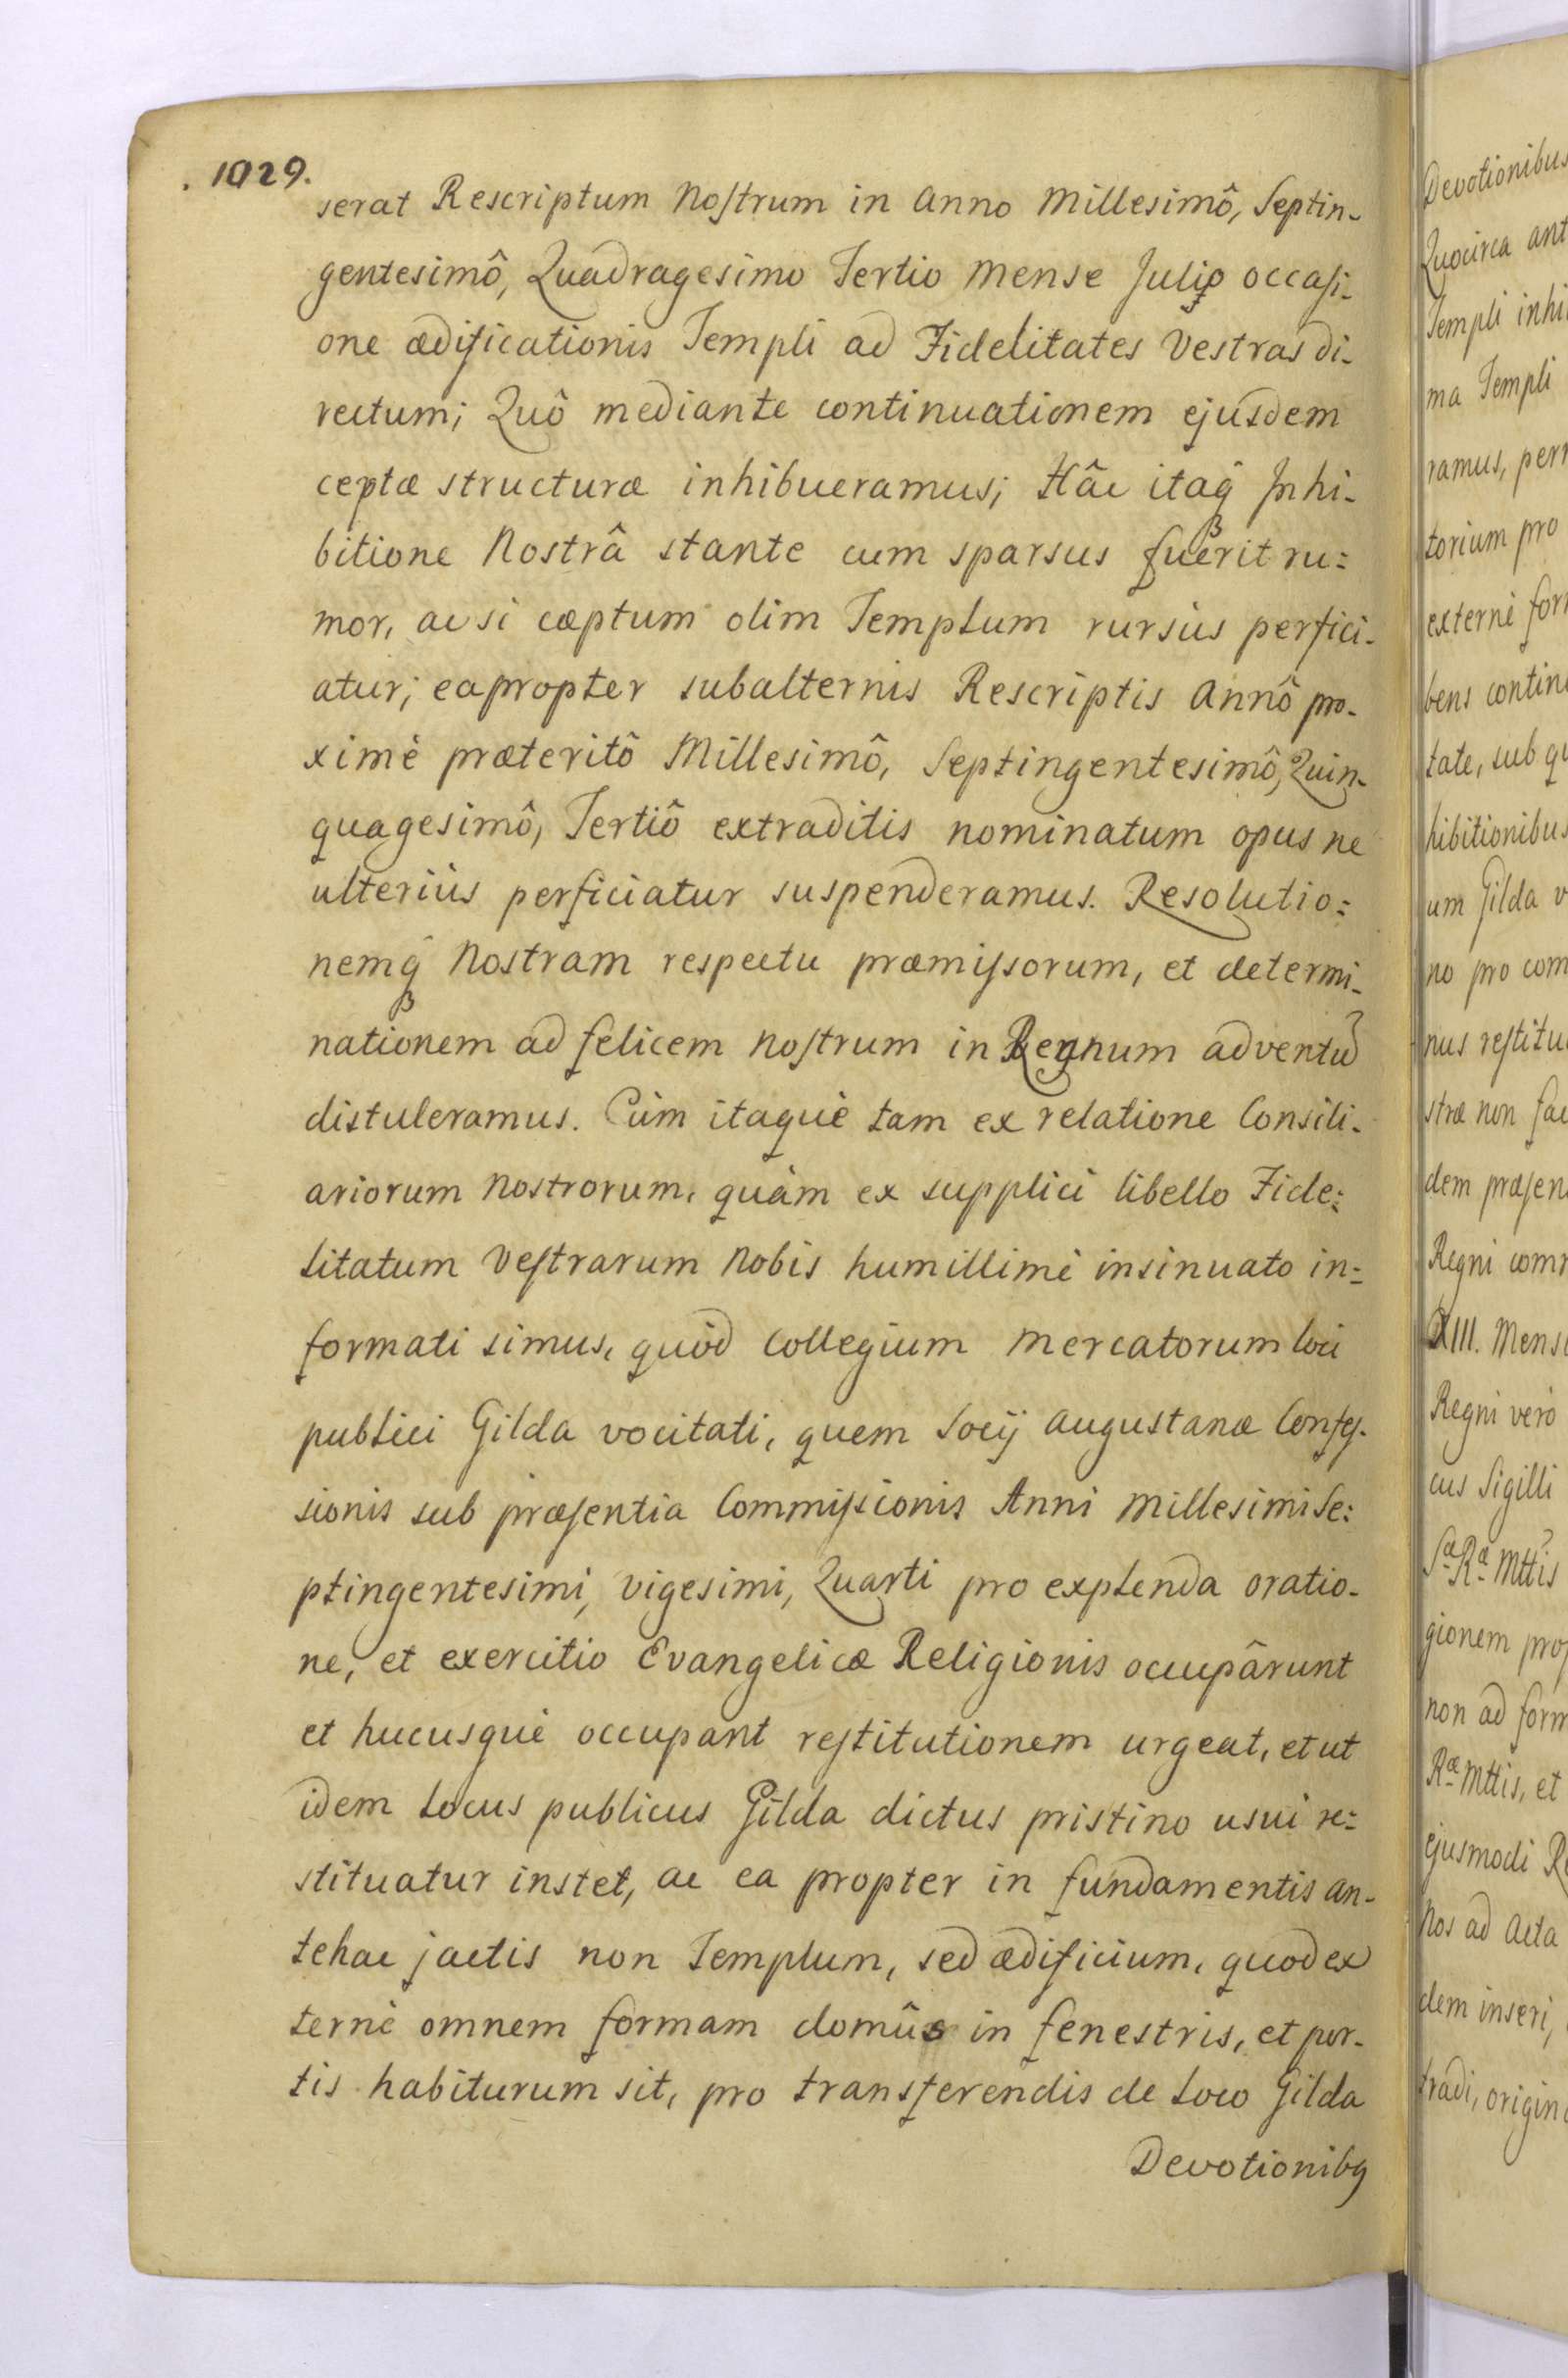 . 1029.
serat Rescriptum Nostrum in Anno Millesimô, Septin-
gentesimô, Quadragesimo Tertio Mense Julio occasi-
one ædificationis Templi ad Fidelitates Vestras di-
rectum; Quô mediante continuationem ejusdem
ceptæ structuræ inhibueramus; Hâc itaq̃ Inhi-
bitione Nostrâ stante cum sparsus fuerit ru=
mor, ac si cæptum olim Templum rursùs perfici-
atur; eapropter subalternis Rescriptis Annô pro-
ximè præteritô Millesimô, Septingentesimô, Quin-
quagesimô, Tertiô extraditis nominatum opus ne
ulteriùs perficiatur suspenderamus. Resolutio=
nemq̃ Nostram respectu præmissorum, et determi-
nationem ad felicem nostrum in Regnum adventũ
distuleramus. Cùm itaquè tam ex relatione Consili-
ariorum Nostrorum, quàm ex supplici libello Fide=
litatum Vestrarum Nobis humillimè insinuato in=
formati simus, quòd Collegium Mercatorum loci
publici Gilda vocitati, quem Socÿ Augustanæ Confes-
sionis sub præsentia Commissionis Anni Millesimi Se=
ptingentesimi, Vigesimi, Quarti pro explenda oratio-
ne, et exercitio Evangelicæ Religionis occupârunt
et hucusquè occupant restitutionem urgeat, et ut
idem Locus publicus Gilda dictus pristino usui re=
stituatur instet, ac ea propter in fundamentis an-
tehac jactis non Templum, sed ædificium, quod ex
ternè omnem formam domûs in fenestris, et por-
tis habiturum sit, pro transferendis de Loco Gilda
Devotionibq
Devotionibus
Quocirca ant
Templi inhi
ma Templi
ramus, per
torium pro
externè for
bens contin
tate, sub qu
hibitionibus
um Gilda v
no pro com
nus restitu
stræ non fac
dem præsen
Regni com
XIII. Mens
Regni verò
cus Sigilli
Sæ Ræ Mttis
gionem prop
non ad form
Ræ Mttis, et
ejusmodi R
Nos ad Acta
dem inseri,
tradi, origin